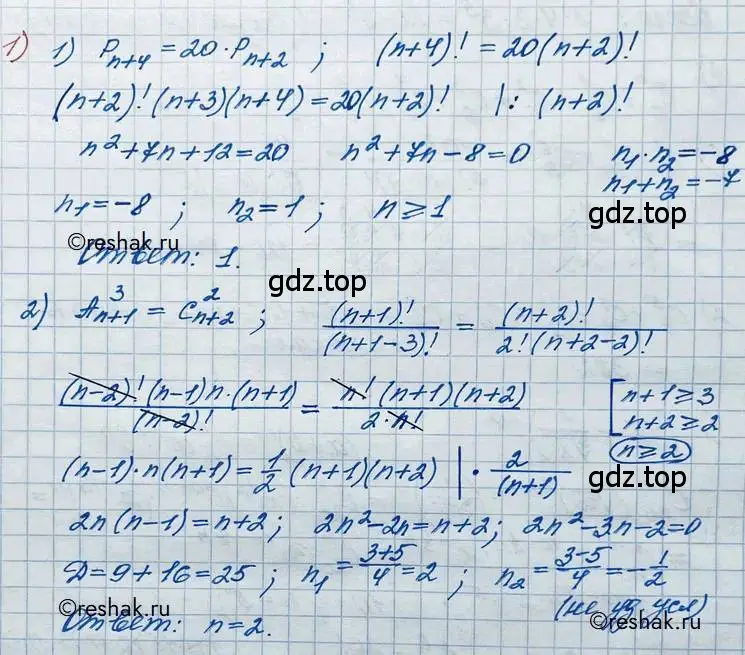 1) 1) P_{n+4} = 20 · P_{n+2} ; (n+4)! = 20(n+2)!
(n+2)! (n+3)(n+4) = 20(n+2)! | : (n+2)!
n² + 7n + 12 = 20 n² + 7n - 8 = 0 n₁ · n₂ = -8
n₁ + n₂ = -7
n₁ = -8 ; n₂ = 1 ; n ≥ 1
gdz.top
©reshak.ru
Ответ: 1.
gdz.top
2) A³_{n+1} = C²_{n+2} ; (n+1)!/(n+1-3)! = (n+2)!/2!(n+2-2)!
(n-2)! (n-1) n · (n+1)/(n-2)! = n! (n+1)(n+2)/2 · n! [ n+1 ≥ 3
n+2 ≥ 2
n ≥ 2
(n-1) · n(n+1) = 1/2 (n+1)(n+2) | · 2/(n+1)
gdz.top
2n(n-1) = n+2 ; 2n² - 2n = n+2 ; 2n² - 3n - 2 = 0
D = 9 + 16 = 25 ; n₁ = 3+5/4 = 2 ; n₂ = 3-5/4 = -1/2
(не уд усл)
©reshak.ru
Ответ: n = 2.